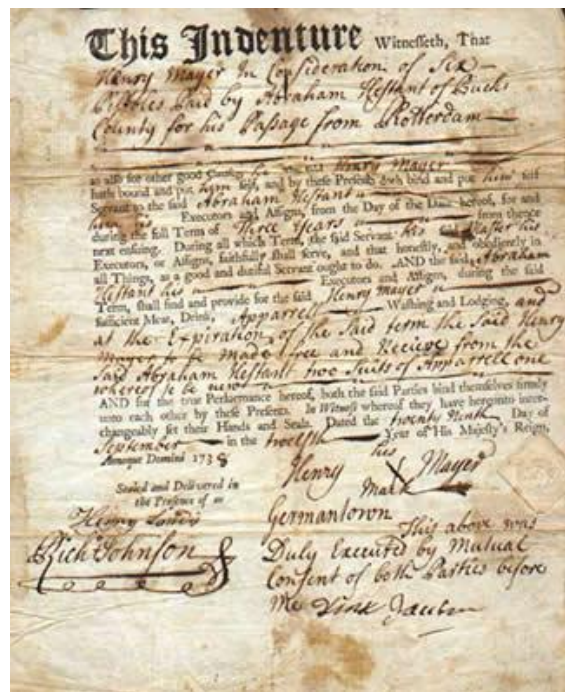 This Indenture Witnesseth, That
Henry Mayer In Consideration of Six
Pistoles paid by Abraham Hestant of Bucks
County for his Passage from Rotterdam
as also for other good Causes he the said Henry Mayer
hath bound and put him self, and by these Presents doth bind and put him self
Servant to the said Abraham Hestant
his Executors and Assigns, from the Day of the Date hereof, for and
during the full Term of Three Years from thence
next ensuing. During all which Term, the said Servant his said Master his
Executors, or Assigns, faithfully shall serve, and that honestly, and obediently in
all Things, as a good and dutiful Servant ought to do. AND the said Abraham
Hestant his Executors and Assigns, during the said
Term, shall find and provide for the said Henry mayer
sufficient Meat, Drink, Apparrell Washing and Lodging, and
at the Expiration of the Said term the Said Henry
Mayer to be made free and Recieve from the
Said Abraham Hestant two Suits of Apparrell one
whereof to be new
AND for the true Performance hereof, both the said Parties bind themselves firmly
unto each other by these Presents. In Witness whereof they have hereunto inter-
changeably set their Hands and Seals. Dated the twenty Ninth Day of
September in the twelfth Year of His Majesty's Reign,
Annoque Domini 1738
his
Henry X Mayer
mark
Sealed and Delivered in
the Presence of us
Henry
Rich Johnson
Germantown
This above was
Duly Executed by Mutual
Consent of both Parties before
me